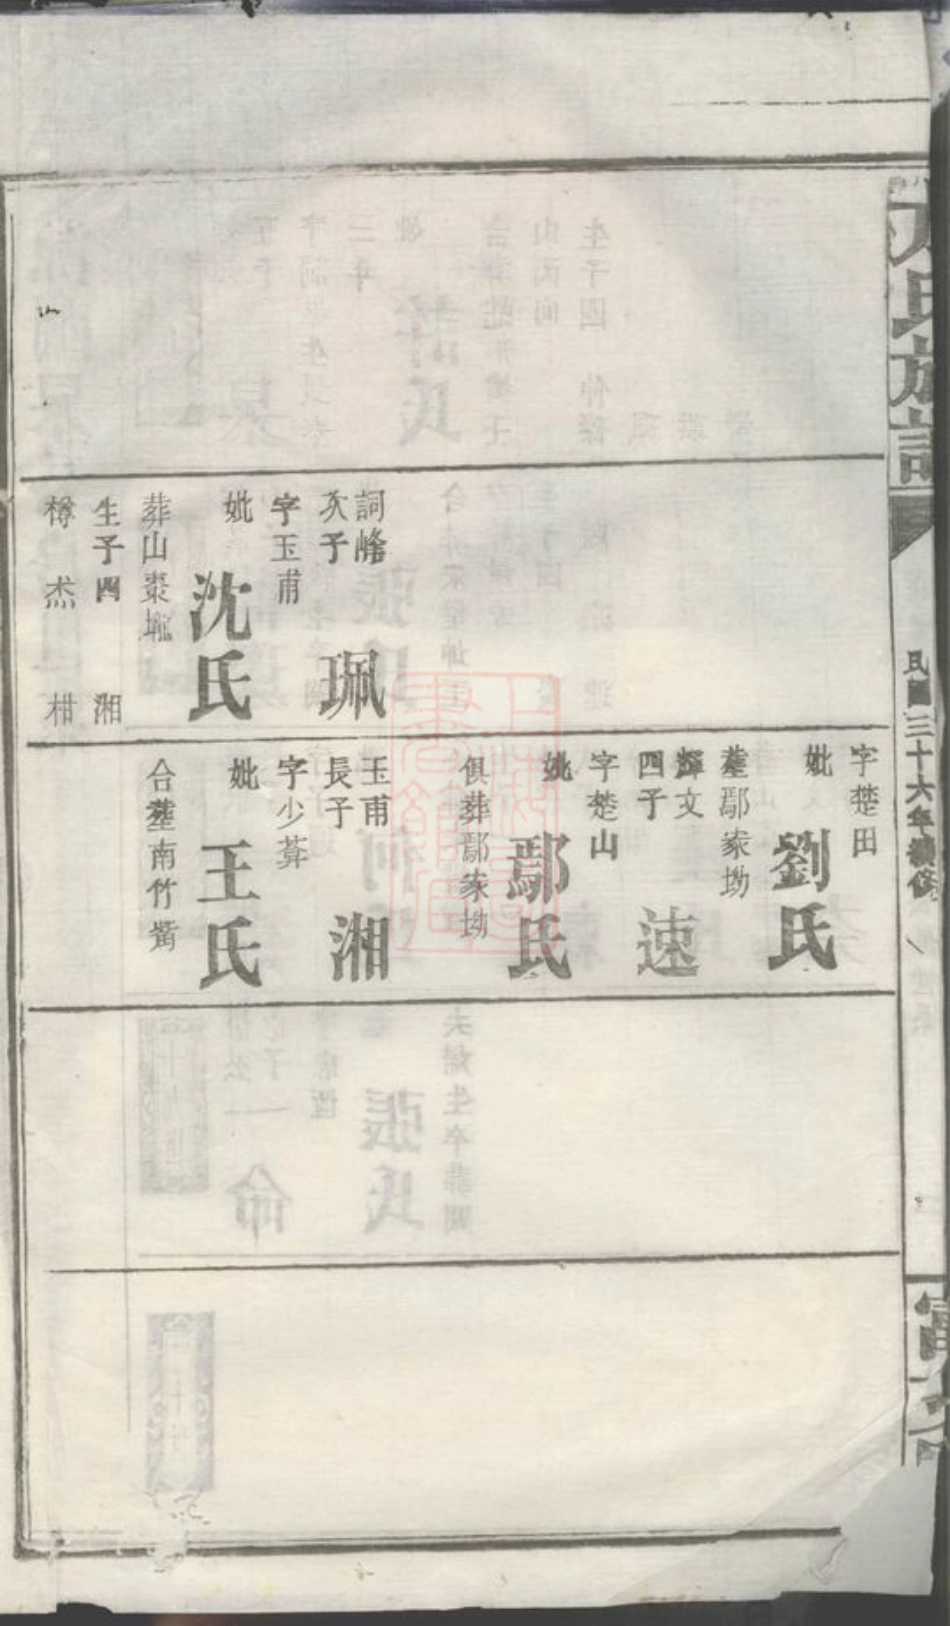 氏族譜
民國三十六年續修
詞峰
次子
珮
字玉甫
妣
沈氏
葬山棗坨
生子四 湘
樽 杰 柑
字楚田
妣
劉氏
塟鄢家坳
輝文
四子
速
字楚山
妣
鄢氏
俱葬鄢家坳
玉甫
長子
湘
字少葊
妣
王氏
合塟南竹嵛